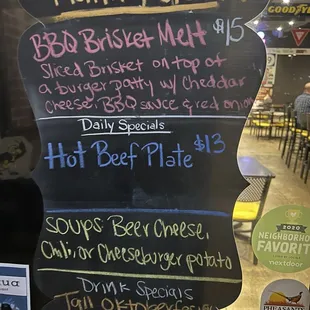 BBQ Brisket Melt $15
Sliced Brisket on top of
a burger patty w/ Cheddar
Cheese, BBQ sauce & red onion
Daily Specials
Hot Beef Plate $13
Soups Beer Cheese,
Chili, or Cheeseburger potato
Drink Specials
Tall Oktoberfest
GOODYEAR
2020
NEIGHBORHOOD
FAVORITE
nextdoor